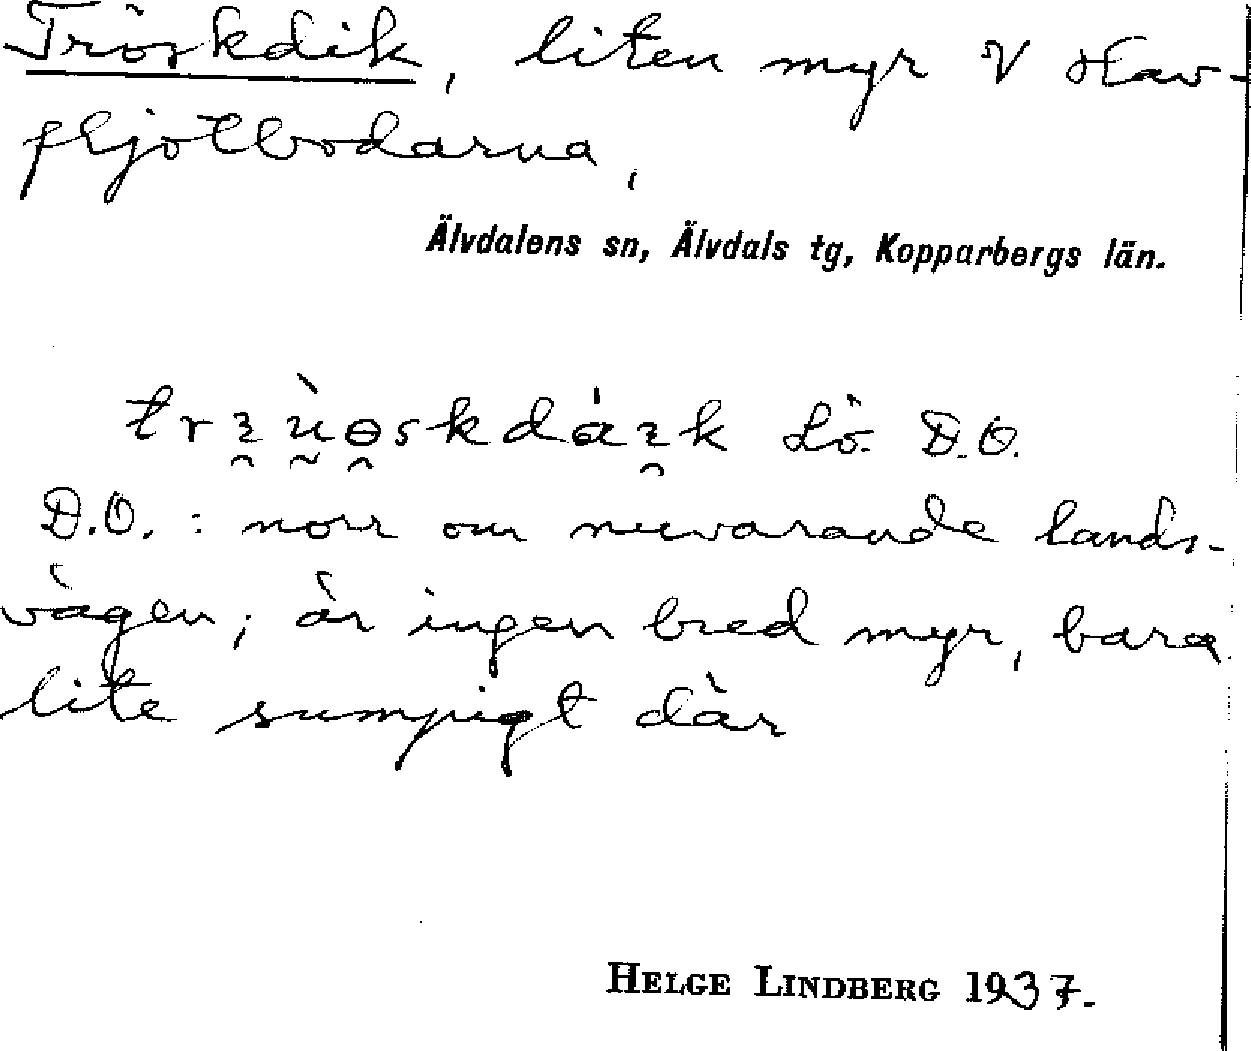 Tröskdik, liten myr V Hav-
fljotbodarna,
Älvdalens sn, Älvdals tg, Kopparbergs län.
Lö. D.O.
D.O. : norr om nuvarande lands-
vägen; är ingen bred myr, bara
lite sumpigt där
HELGE LINDBERG 1937.